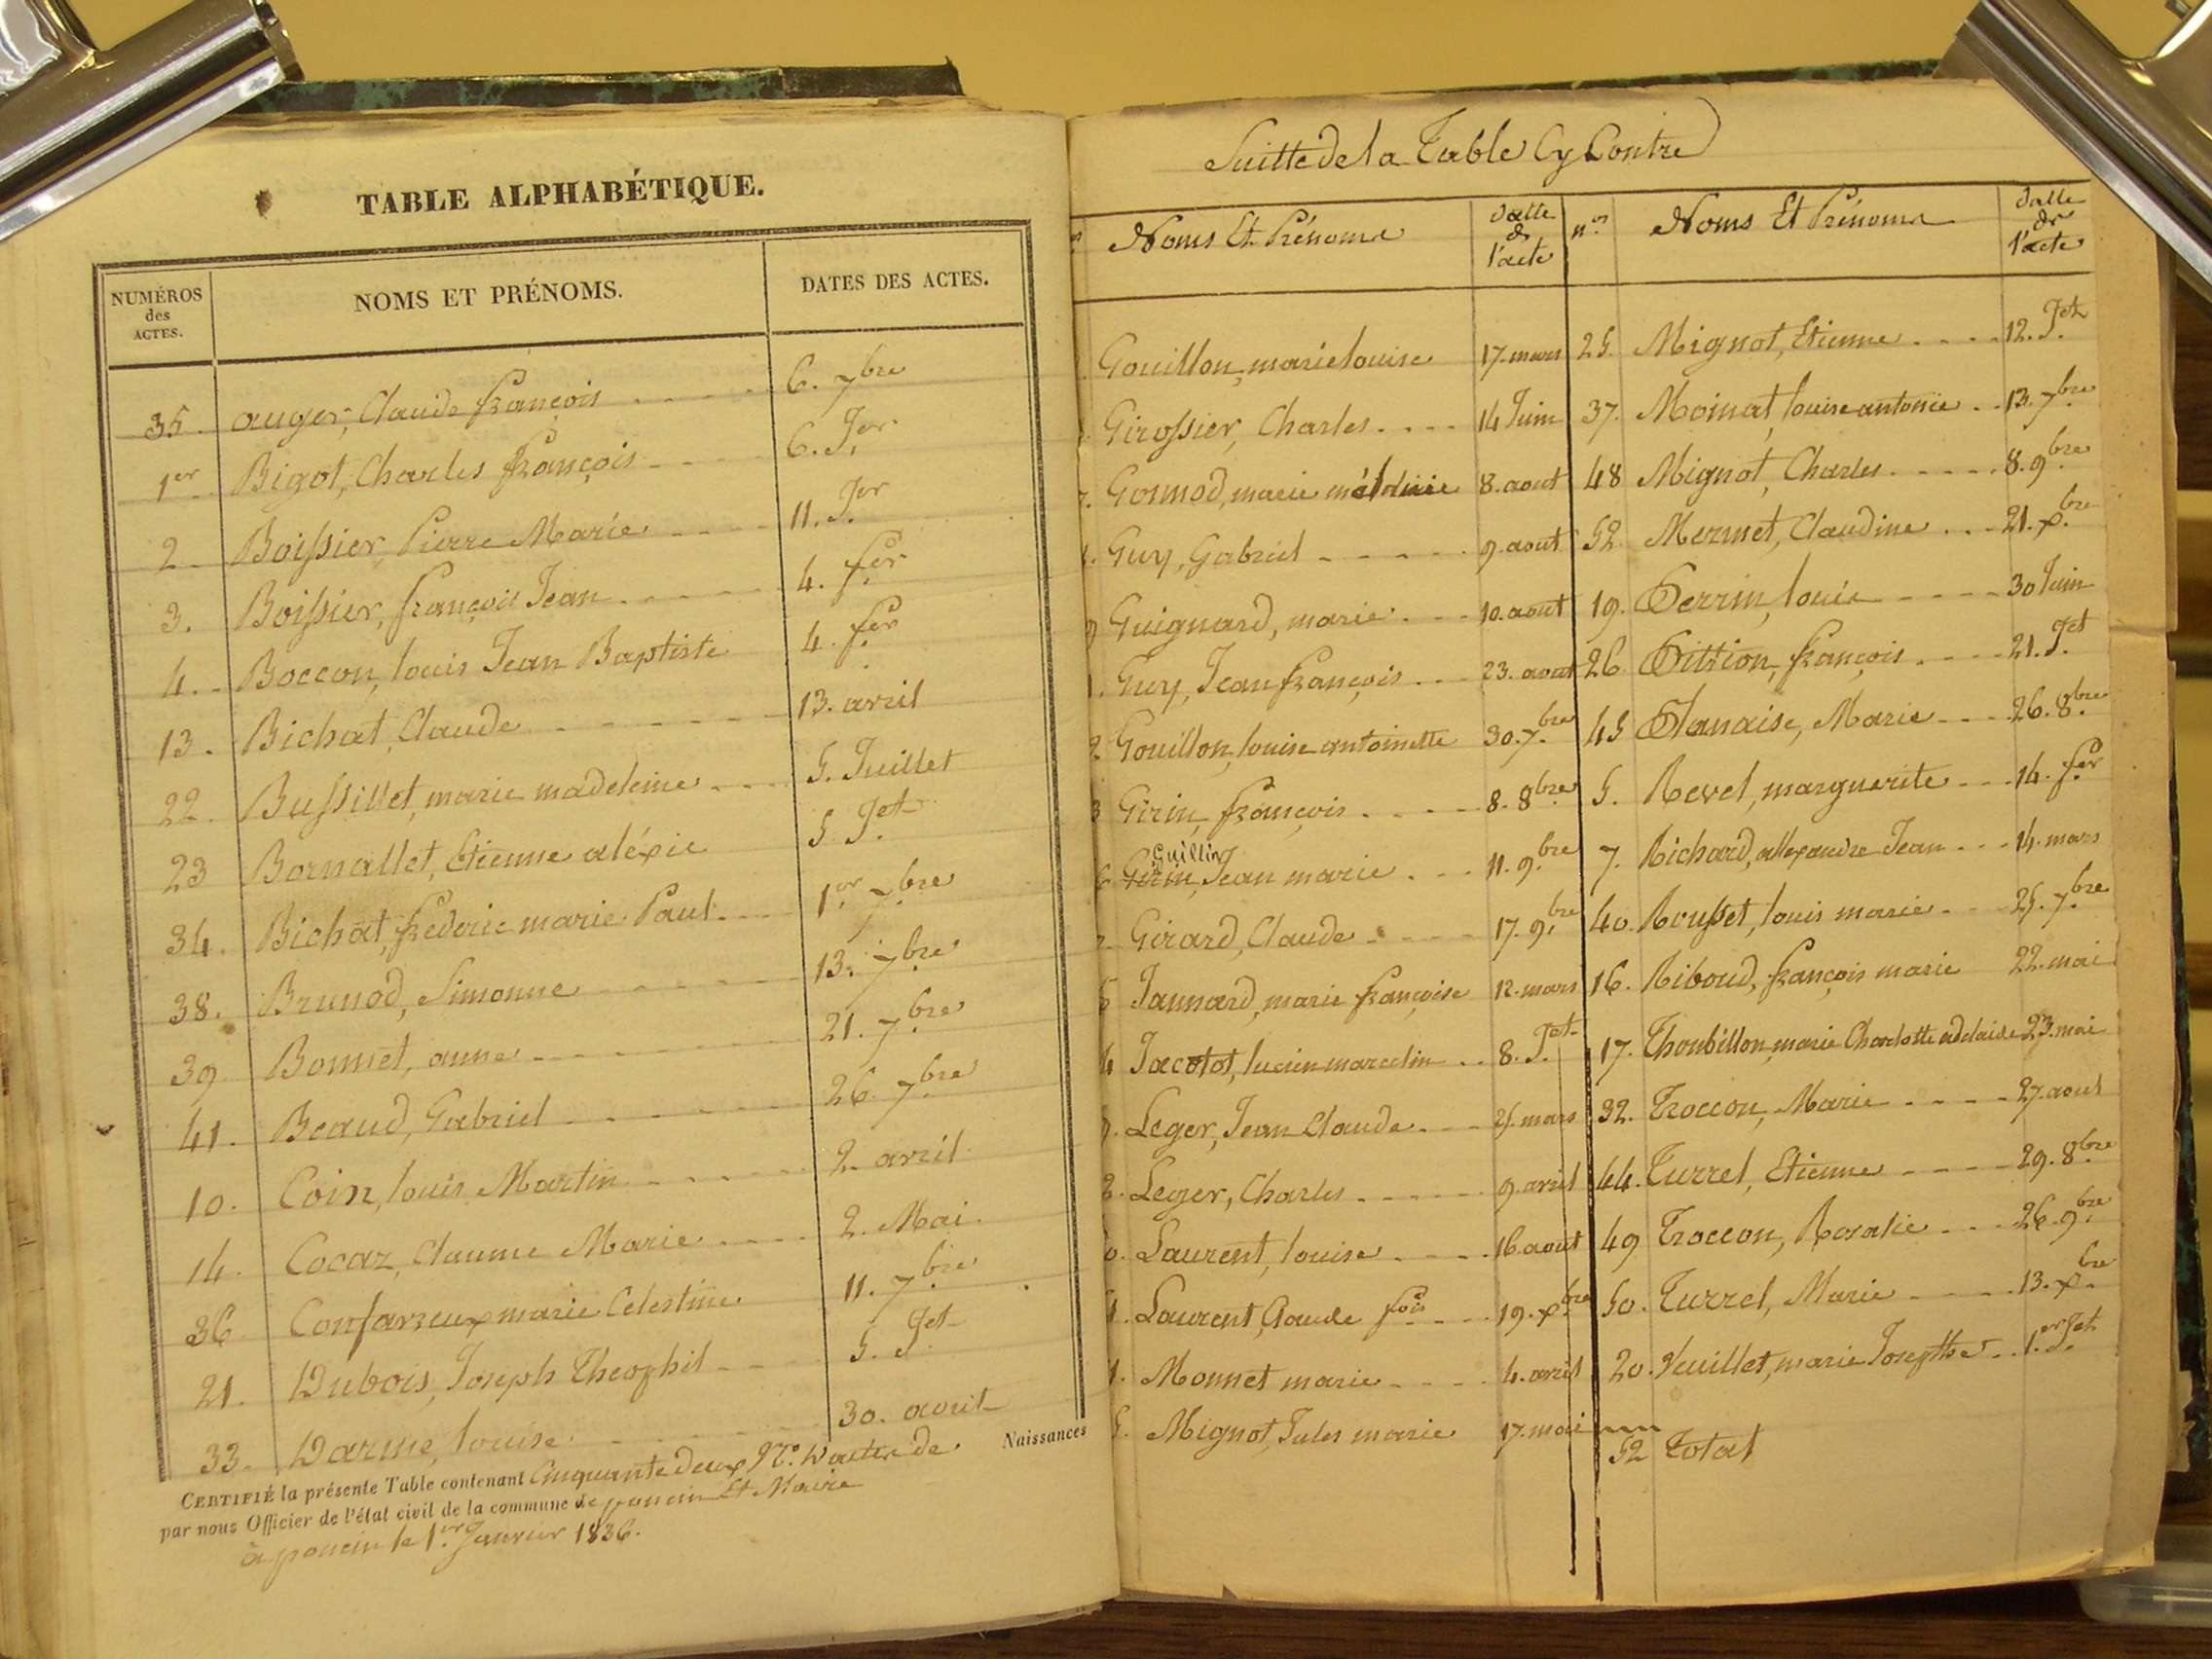 TABLE ALPHABÉTIQUE.
NUMÉROS
des
ACTES.
NOMS ET PRÉNOMS.
DATES DES ACTES.
35. auger, Claude françois 6. 7bre
1er Bigot, Charles françois 6. Jer
2 Boissier, Pierre Marie 11. Jer
3. Boissier, françois Jean 4. fer
4. Boccon, louis Jean Baptiste 4. fer
13. Bichat, Claude 13. avril
22. Bussillet, marie madeleine 5. Juillet
23 Bornallet, Etienne aléxie 5. Jet
34. Bichat, frederic marie Paul 1er 7bre
38. Brunod, Simonne 13. 7bre
39 Bonnet, anne 21. 7bre
41. Beaud, Gabriel 26. 7bre
10. Coin, louis Martin 2. avril
14. Cocaz, Claume Marie 2. Mai
36 marie Celestine 11. 7bre
21. Dubois, Joseph Theophil 5. Jet
33. Darme, louise 30. aout
CERTIFIÉ la présente Table contenant Cinquante deux No. D'actes de Naissances
par nous Officier de l'état civil de la commune de poncin Et Maire
à poncin le 1er Janvier 1836.
Suitte de la Table Cy Contre
Noms Et Prénoms
Datte
de
l'acte
nos
Noms Et Prénoms
Datte
de
l'acte
Gouillon, marie louise 17. mars 25. Mignot, Etienne 12. Jet
Girossier, Charles 14 Juin 37. Moinat, louise antonie 13. 7bre
Gosmod, marie 8. aout 48 Mignot, Charles 8. 9bre
Guy, Gabriel 9. aout 52 Mermet, Claudine 21. xbre
Guignard, marie 10. aout 19. Perrin, louis 30 Juin
Guy, Jean françois 23. aout 26 Pittion, françois 21. Jet
Gouillon, louise antoinette 30. 7bre 45 Planaise, Marie 26. 8bre
Girin, françois 8. 8bre 5. Revel, marguerite 14. fer
Guillin
Girin, Jean marie 11. 9bre 7. Richard, allexandre Jean 14. mars
Girard, Claude 17. 9bre 40. Rousset, louis marie 25. 7bre
Jannard, marie françoise 12. mars 16. Riboud, françois marie 22. mai
Jacotot, lucien marcelin 8. Jet 17. Thoubillon, marie Charlotte adelaide 23. mai
Leger, Jean Claude 25. mars 32. Troccon, Marie 27. aout
Leger, Charles 9. avril 44. Turrel, Etienne 29. 8bre
Laurent, louise 16. aout 49 Troccon, Rosalie 26. 9bre
Laurent, Claude fois 19. xbre 50. Turrel, Marie 13. xbre
Monnet marie 4. avril 20. Veuillet, marie Josephte 1er Jet
Mignot, Jules marie 17. mai
52 Total